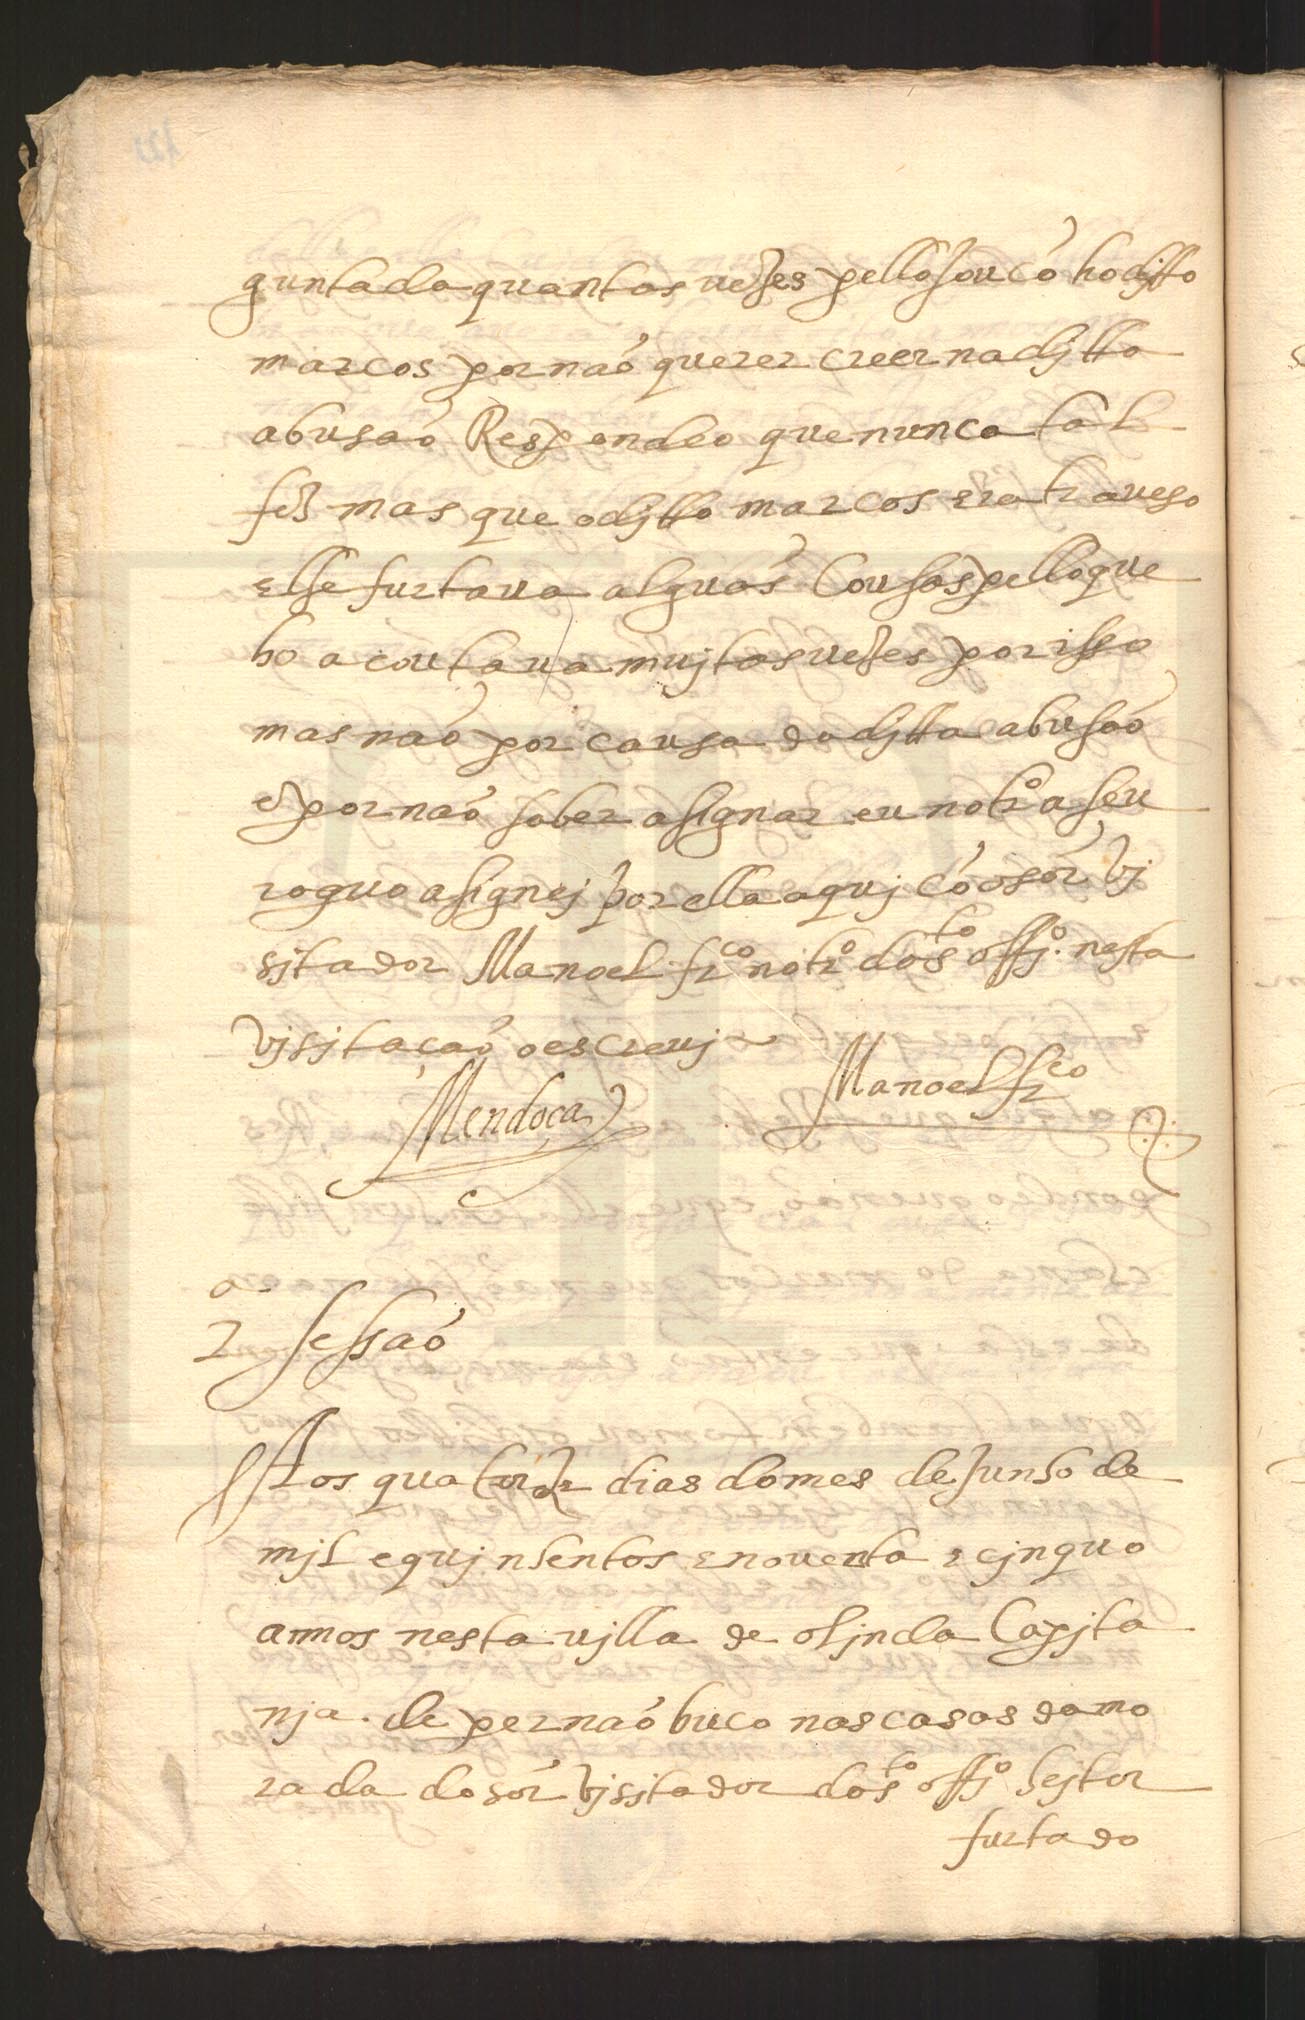 guntada quantas vezes pellejou cõ ho ditto
marcos por naõ querer creer na ditta
abusaõ Respondeo que nunca tal
fez mas que o ditto marcos era traveso
e lhe furtava alguãs Cousas pello que
ho acoutava mujtas vezes por isso
mas naõ por causa da ditta abusaõ
e por naõ saber asignar eu notrº a seu
roguo asignej por ella aquj cõ o sõr vj
sitador Manoel frco notrº do sto offjº. nesta
vjsitaçaõ o escrevj
Mendoça Manoel frco
2a sessaõ
Aos quatorze dias do mes de Junho de
mjl e qujnhentos e noventa e cjnquo
annos nesta vjlla de oljnda Capita
nja. de pernaõbuco nas casas da mo
rada do sõr vjsitador do sto offjº heitor
furtado